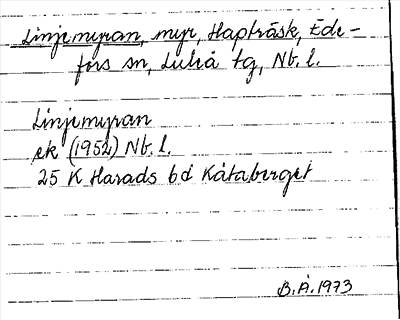 Linjemyran, myr, Hapträsk, Ede-
fors sn, Luleå tg, Nb. l.
Linjemyran
ek (1952) Nb. l.
25 K Harads bd Kåtaberget
B.Å. 1973